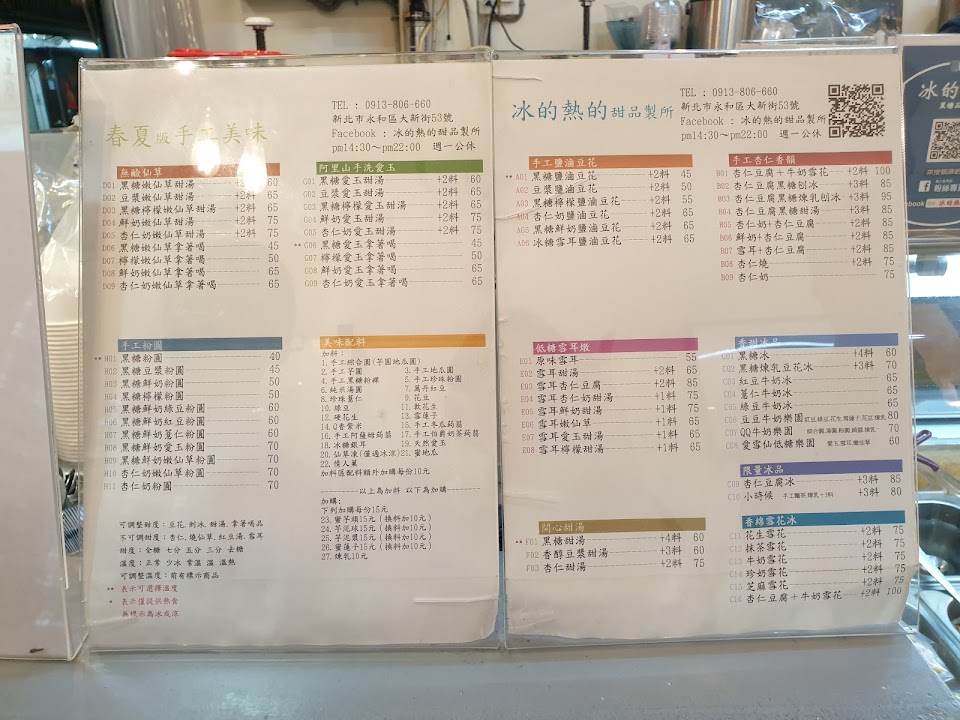 春夏版手工美味
TEL : 0913-806-660
新北市永和區大新街53號
Facebook : 冰的熱的甜品製所
pm14:30~pm22:00 週一公休
無鹼仙草
D01 黑糖嫩仙草甜湯 +2料 60
D02 豆漿嫩仙草甜湯 +2料 65
D03 黑糖檸檬嫩仙草甜湯 +2料 65
D04 鮮奶嫩仙草甜湯 +2料 75
D05 杏仁奶嫩仙草甜湯 +2料 75
D06 黑糖嫩仙草拿著喝 45
D07 檸檬嫩仙草拿著喝 50
D08 鮮奶嫩仙草拿著喝 65
D09 杏仁奶嫩仙草拿著喝 65
阿里山手洗愛玉
G01 黑糖愛玉甜湯 +2料 60
G02 豆漿愛玉甜湯 +2料 65
G03 黑糖檸檬愛玉甜湯 +2料 65
G04 鮮奶愛玉甜湯 +2料 75
G05 杏仁奶愛玉甜湯 +2料 75
** G06 黑糖愛玉拿著喝 45
G07 檸檬愛玉拿著喝 50
G08 鮮奶愛玉拿著喝 65
G09 杏仁奶愛玉拿著喝 65
手工粉圓
** H01 黑糖粉圓 40
H02 黑糖豆漿粉圓 45
H03 黑糖鮮奶粉圓 50
H04 黑糖檸檬粉圓 50
H05 黑糖鮮奶綠豆粉圓 60
H06 黑糖鮮奶紅豆粉圓 60
H07 黑糖鮮奶薏仁粉圓 60
H08 黑糖鮮奶愛玉粉圓 70
H09 黑糖鮮奶嫩仙草粉圓 70
H10 杏仁奶嫩仙草粉圓 70
H11 杏仁奶粉圓 70
美味配料
加料：
1. 手工綜合圓(芋圓地瓜圓)
2. 手工芋圓 3. 手工地瓜圓
4. 手工黑糖粉粿 5. 手工珍珠粉圓
6. 純米湯圓 7. 萬丹紅豆
8. 珍珠薏仁 9. 花豆
10. 綠豆 11. 軟花生
12. 硬花生 13. 雪蓮子
14. Q香紫米 15. 手工冬瓜蒟蒻
16. 手工阿薩姆蒟蒻 17. 手工伯爵奶茶蒟蒻
18. 冰糖銀耳 19. 天然愛玉
20. 仙草凍(僅適冰涼) 21. 蜜地瓜
22. 情人菓
加料區配料額外加購每份10元
以上為加料 以下為加購
加購：
下列加購每份15元
23. 蜜芋頭15元 (換料加10元)
24. 芋泥球15元 (換料加10元)
25. 芋泥漿15元 (換料加10元)
26. 蜜蓮子15元 (換料加10元)
27. 煉乳10元
可調整甜度：豆花, 刨冰, 甜湯, 拿著喝品
不可調甜度：杏仁, 燒仙草, 紅豆湯, 雪耳
甜度：全糖 七分 五分 三分 去糖
溫度：正常 少冰 常溫 溫 溫熱
可調整溫度：前有標示商品
** 表示可選擇溫度
* 表示僅提供熱食
無標示為冰或涼
冰的熱的甜品製所
TEL : 0913-806-660
新北市永和區大新街53號
Facebook : 冰的熱的甜品製所
pm14:30~pm22:00 週一公休
手工鹽滷豆花
** A01 黑糖鹽滷豆花 +2料 45
A02 豆漿鹽滷豆花 +2料 50
A03 黑糖檸檬鹽滷豆花 +2料 55
A04 杏仁奶鹽滷豆花 +2料 65
A05 黑糖鮮奶鹽滷豆花 +2料 65
A06 冰糖雪耳鹽滷豆花 +2料 65
手工杏仁香韻
B01 杏仁豆腐＋牛奶雪花 +2料 100
B02 杏仁豆腐黑糖刨冰 +3料 85
B03 杏仁豆腐黑糖煉乳刨冰 +3料 95
B04 杏仁豆腐黑糖甜湯 +3料 85
B05 杏仁奶+杏仁豆腐 +2料 85
B06 鮮奶+杏仁豆腐 +2料 85
B07 雪耳+杏仁豆腐 +2料 85
B08 杏仁燒 +2料 75
B09 杏仁奶 75
低糖雪耳燉
E01 原味雪耳 55
E02 雪耳甜湯 +2料 65
E03 雪耳杏仁豆腐 +2料 85
E04 雪耳杏仁奶甜湯 +1料 75
E05 雪耳鮮奶甜湯 +1料 75
E06 雪耳嫩仙草 +1料 65
E07 雪耳愛玉甜湯 +1料 65
E08 雪耳檸檬甜湯 +1料 65
香甜冰品
C01 黑糖冰 +4料 60
C02 黑糖煉乳豆花冰 +3料 70
C03 紅豆牛奶冰 65
C04 薏仁牛奶冰 65
C05 綠豆牛奶冰 65
C06 豆豆牛奶樂園 紅豆,綠豆,花生,雪蓮子,花豆,煉乳 80
C07 QQ牛奶樂園 綜合圓,湯圓,粉圓,蒟蒻,煉乳 70
C08 愛雪仙低糖樂園 愛玉,雪耳,嫩仙草 60
限量冰品
C09 杏仁豆腐冰 +3料 85
C10 小時候 手工麵茶,煉乳+3料 80
開心甜湯
** F01 黑糖甜湯 +4料 60
F02 香醇豆漿甜湯 +3料 60
F03 杏仁甜湯 +2料 75
香綿雪花冰
C11 花生雪花 +2料 75
C12 抹茶雪花 +2料 75
C13 牛奶雪花 +2料 75
C14 珍奶雪花 +2料 75
C15 芝麻雪花 +2料 75
C16 杏仁豆腐＋牛奶雪花 +2料 100
冰的